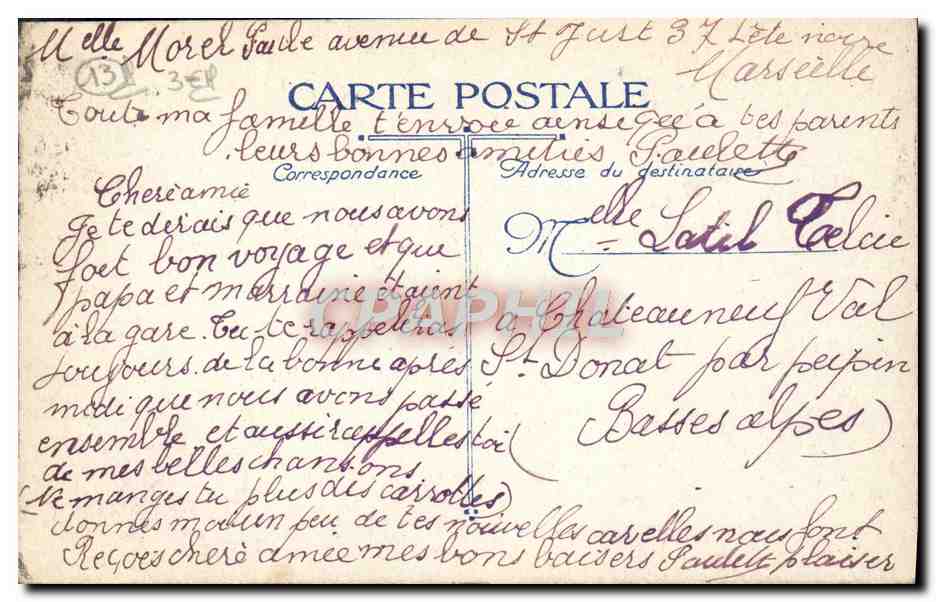 Melle Morel Paule avenue de St Just 37 tête noire
Marseille
13
3 EP
CARTE POSTALE
Toute ma famille t'envoie ainsi qeé à tes parents
leurs bonnes amitiés Paulette
Correspondance
Chère amie
Je te derais que nous avons
foet bon voyage et que
papa et marraine étaient
à la gare. Tu te rappelleras
toujours de la bonne après
midi que nous avons passé
ensemble et aussi rappelles toi
de mes belles chansons
(Ne manges tu plus des carrottes)
donnes moi un peu de tes nouvelles car elles nous font
Reçois chère amiee mes bons baisers Paulett plaiser
Adresse du destinataire
Melle Latil Celcie
à Chateauneuf Val
St Donat par peipin
(Basses alpes)
CPAPHIL